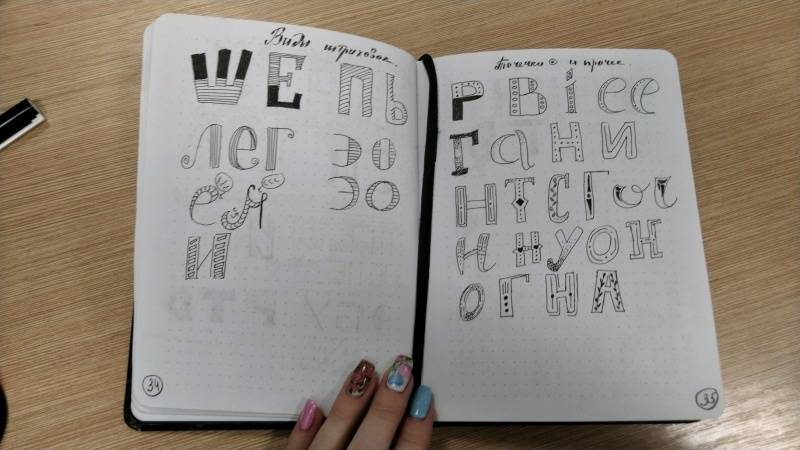 Виды штриховок.
Ш Е П Ь
Л е Г Э Ю
Э О
е я
И
34
Точечки и прочее.
Р В І е е
Г а Н И
Н Т С Г о г
Н Н У О Н
О Г Н А
35